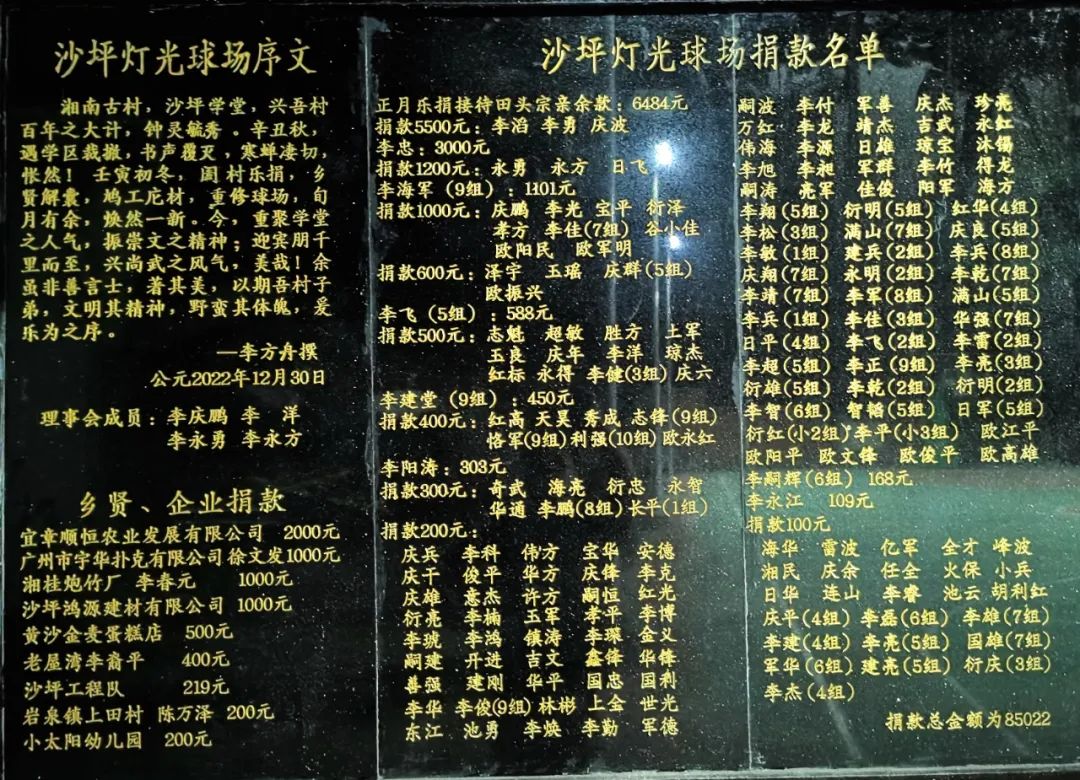 沙坪灯光球场序文
湘南古村，沙坪学堂，兴吾村
百年之大计，钟灵毓秀。辛丑秋，
遇学区裁撤，书声覆灭，寒蝉凄切，
怅然！壬寅初冬，阖村乐捐，乡
贤解囊，鸠工庀材，重修球场，旬
月有余，焕然一新。今，重聚学堂
之人气，振崇文之精神；迎宾朋千
里而至，兴尚武之风气，美哉！余
虽非善言士，著其美，以期吾村子
弟，文明其精神，野蛮其体魄，爰
乐为之序。
—李方舟撰
公元2022年12月30日
理事会成员：李庆鹏 李 洋
李永勇 李永方
乡贤、企业捐款
宜章顺恒农业发展有限公司 2000元
广州市宇华扑克有限公司徐文发1000元
湘桂炮竹厂 李春元 1000元
沙坪鸿源建材有限公司 1000元
黄沙金麦蛋糕店 500元
老屋湾李裔平 400元
沙坪工程队 219元
岩泉镇上田村 陈万泽 200元
小太阳幼儿园 200元
沙坪灯光球场捐款名单
正月乐捐接待田头宗亲余款：6484元
捐款5500元：李滔 李勇 庆波
李忠：3000元
捐款1200元：永勇 永方 日飞
李海军（9组）：1101元
捐款1000元：庆鹏 李光 宝平 衍泽
孝方 李佳(7组) 谷小佳
欧阳民 欧军明
捐款600元：泽宇 玉瑶 庆群(5组)
欧振兴
李飞（5组）：588元
捐款500元：志魁 超敏 胜方 土军
玉良 庆年 李洋 琼杰
红标 永得 李健(3组) 庆六
李建堂（9组）：450元
捐款400元：红高 天昊 秀成 志锋(9组)
恪军(9组) 利强(10组) 欧永红
李阳涛：303元
捐款300元：奇武 海亮 衍忠 永智
华通 李鹏(8组) 长平(1组)
捐款200元：
庆兵 李科 伟方 宝华 安德
庆干 俊平 华方 庆锋 李克
庆雄 意杰 许方 嗣恒 红光
衍亮 李楠 玉军 孝平 李博
李琥 李鸿 镇涛 李璨 金义
嗣建 开进 吉文 鑫锋 华锋
善强 建刚 华平 国忠 国利
李华 李俊(9组) 林彬 上金 世光
东江 池勇 李焕 李勤 军德
嗣波 李付 军善 庆杰 珍亮
万红 李龙 靖杰 吉武 永红
伟海 李源 日雄 琼宝 沐锡
李旭 李昶 军群 李竹 得龙
嗣涛 亮军 佳俊 阳军 海方
李翔(5组) 衍明(5组) 红华(4组)
李松(3组) 满山(7组) 庆良(5组)
李敏(1组) 建兵(2组) 李兵(8组)
庆翔(7组) 永明(2组) 李乾(7组)
李靖(7组) 李军(8组) 满山(5组)
李兵(1组) 李佳(3组) 华强(7组)
日平(4组) 李飞(2组) 李雷(2组)
李超(5组) 李正(9组) 李亮(3组)
衍雄(5组) 李乾(2组) 衍明(2组)
李智(6组) 智韬(5组) 日军(5组)
衍红(小2组) 李平(小3组) 欧江平
欧阳平 欧文锋 欧俊平 欧高雄
李嗣辉(6组) 168元
李永江 109元
捐款100元
海华 雷波 亿军 全才 峰波
湘民 庆余 任全 火保 小兵
日华 连山 李睿 池云 胡利红
庆平(4组) 李磊(6组) 李雄(7组)
李建(4组) 李亮(5组) 国雄(7组)
军华(6组) 建亮(5组) 衍庆(3组)
李杰(4组)
捐款总金额为85022